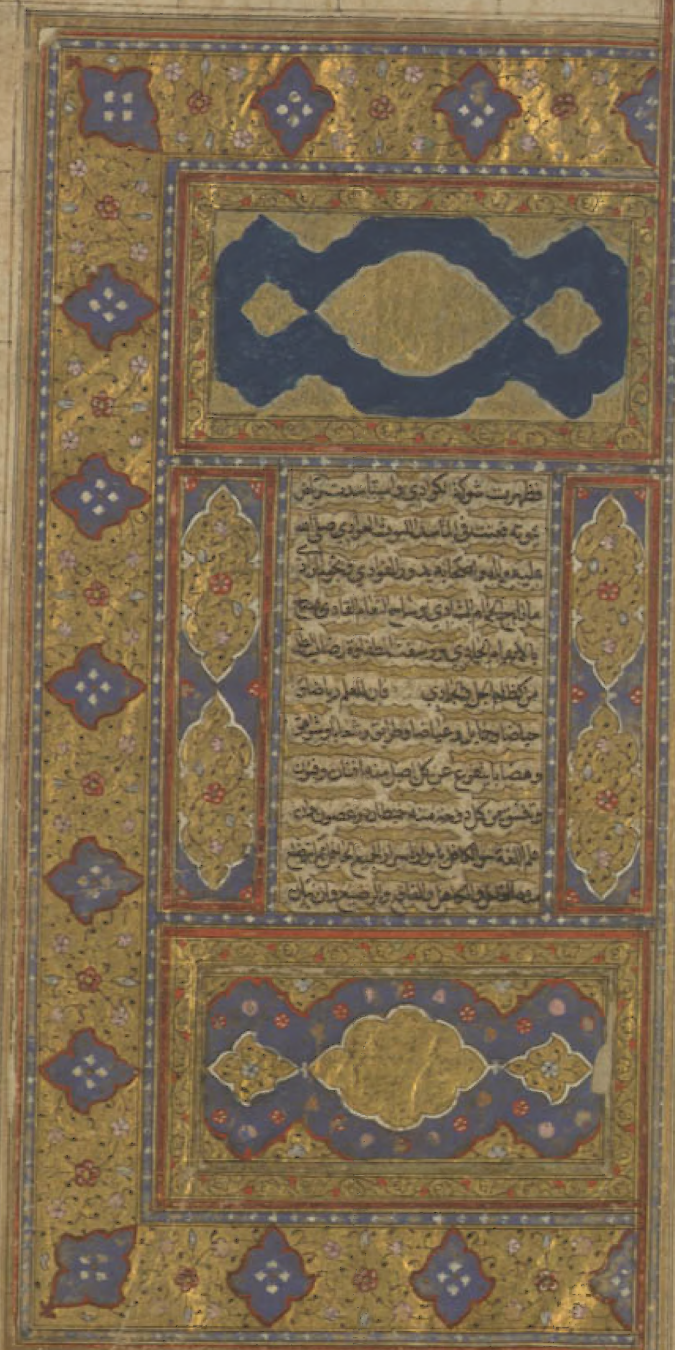 فظهرت شوكة الكوادي واستأسدت رياض
نبوته فعيت في المآسد الليوث العوادي صلى الله
عليه وعلى آله وأصحابه بدور القوادي ونجوم الدآ
ما ناح الحمام الشادي وساح النعام القادي وصاح
بالأنغام الحادي ورشفت الطفاوة رضاب الطل
من كظام الجل والجادي فإن للعلم رياضا و
حياضا وخمائل وغياضا وطرائق وشعابا وشواهق
وهضابا يتفرع عن كل أصل منه أفنان وفنون
وينشق عن كل دوحة منه خيطان وغصون وإن
علم اللغة هو الكافل بإبراز أسرار الجميع الحافل بما يتضلع
منه القاحل والكاهل والفاقع والرضيع وإن بيان